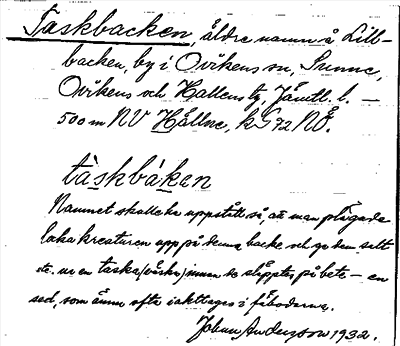 Taskbacken, äldre namn å Lill-
backen, by i Ovikens sn, Sunne,
Ovikens och Hallens tg, Jämtl. l. –
500 m NV Hållne, kG 72 NÖ.
tàskbákan
Namnet skall ha uppstått så, att man plägade
locka kreaturen upp på denna backe och ge dem salt
etc. ur en taska (väska) innan de släpptes på bete – en
sed, som ännu ofta iakttages i fäboderna.
Johan Andersson 1932.